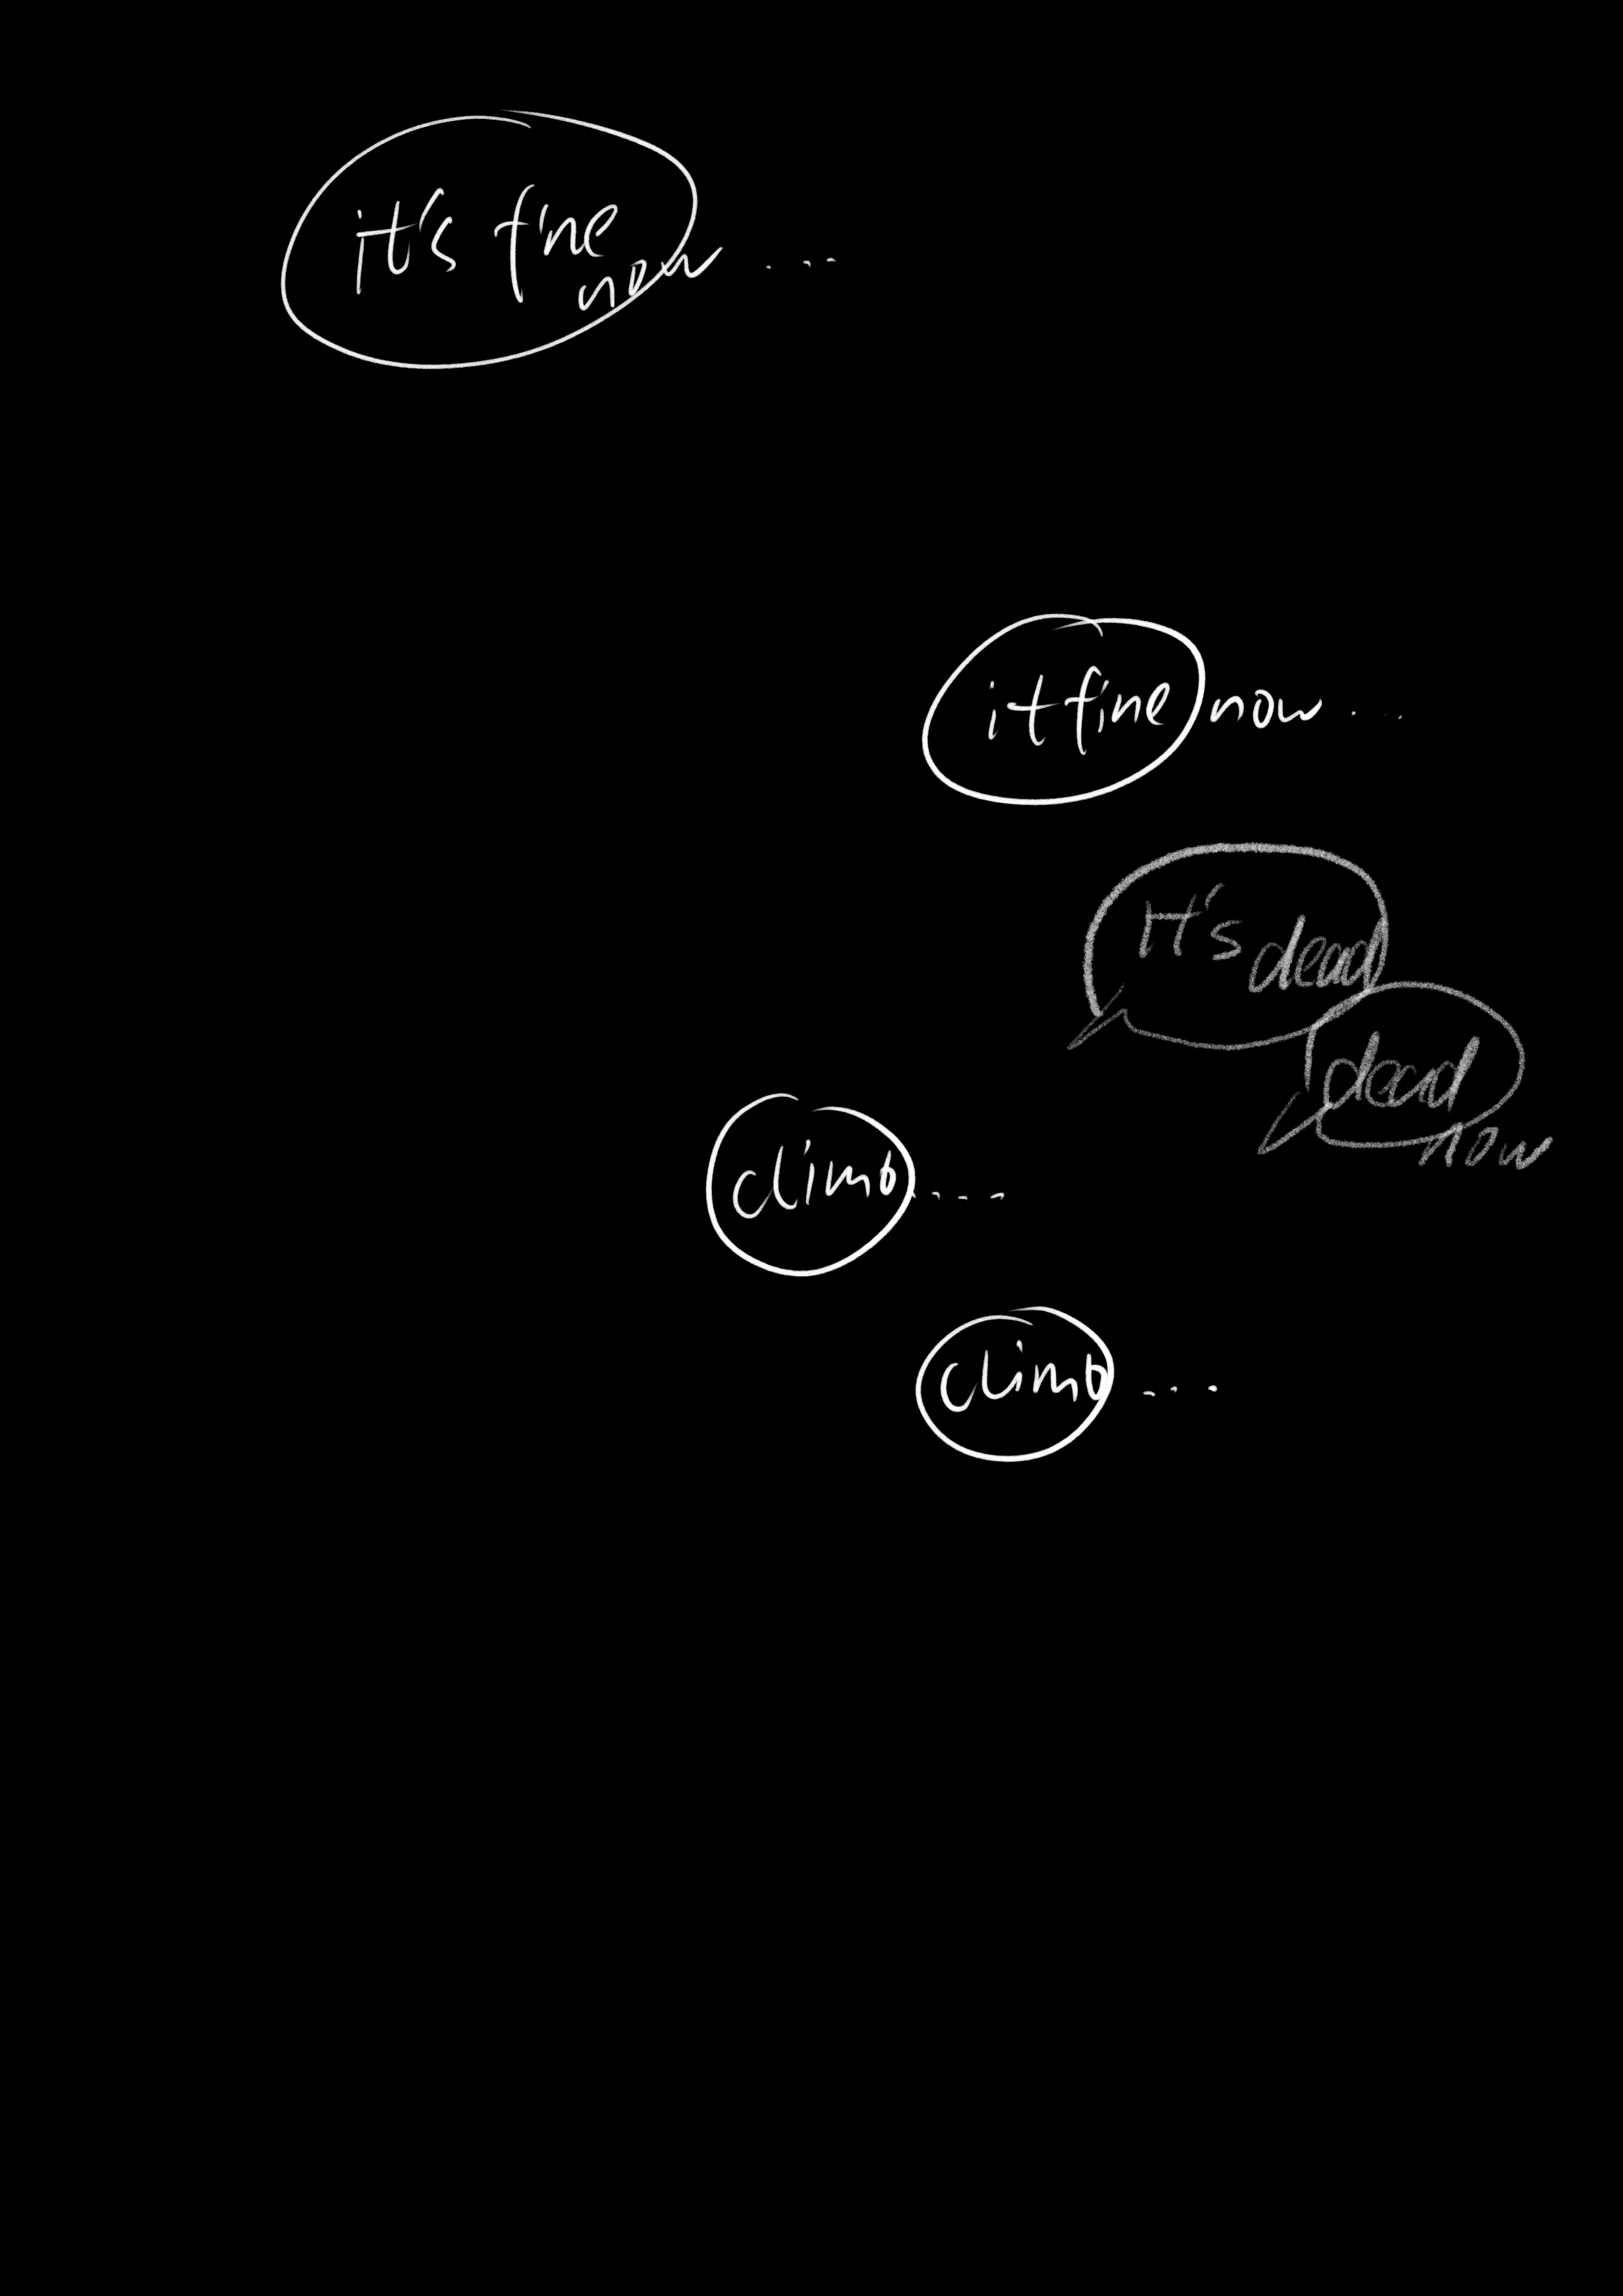 it's fine
now ...
it fine now ...
It's dead
dead
now
climb ...
climb ...